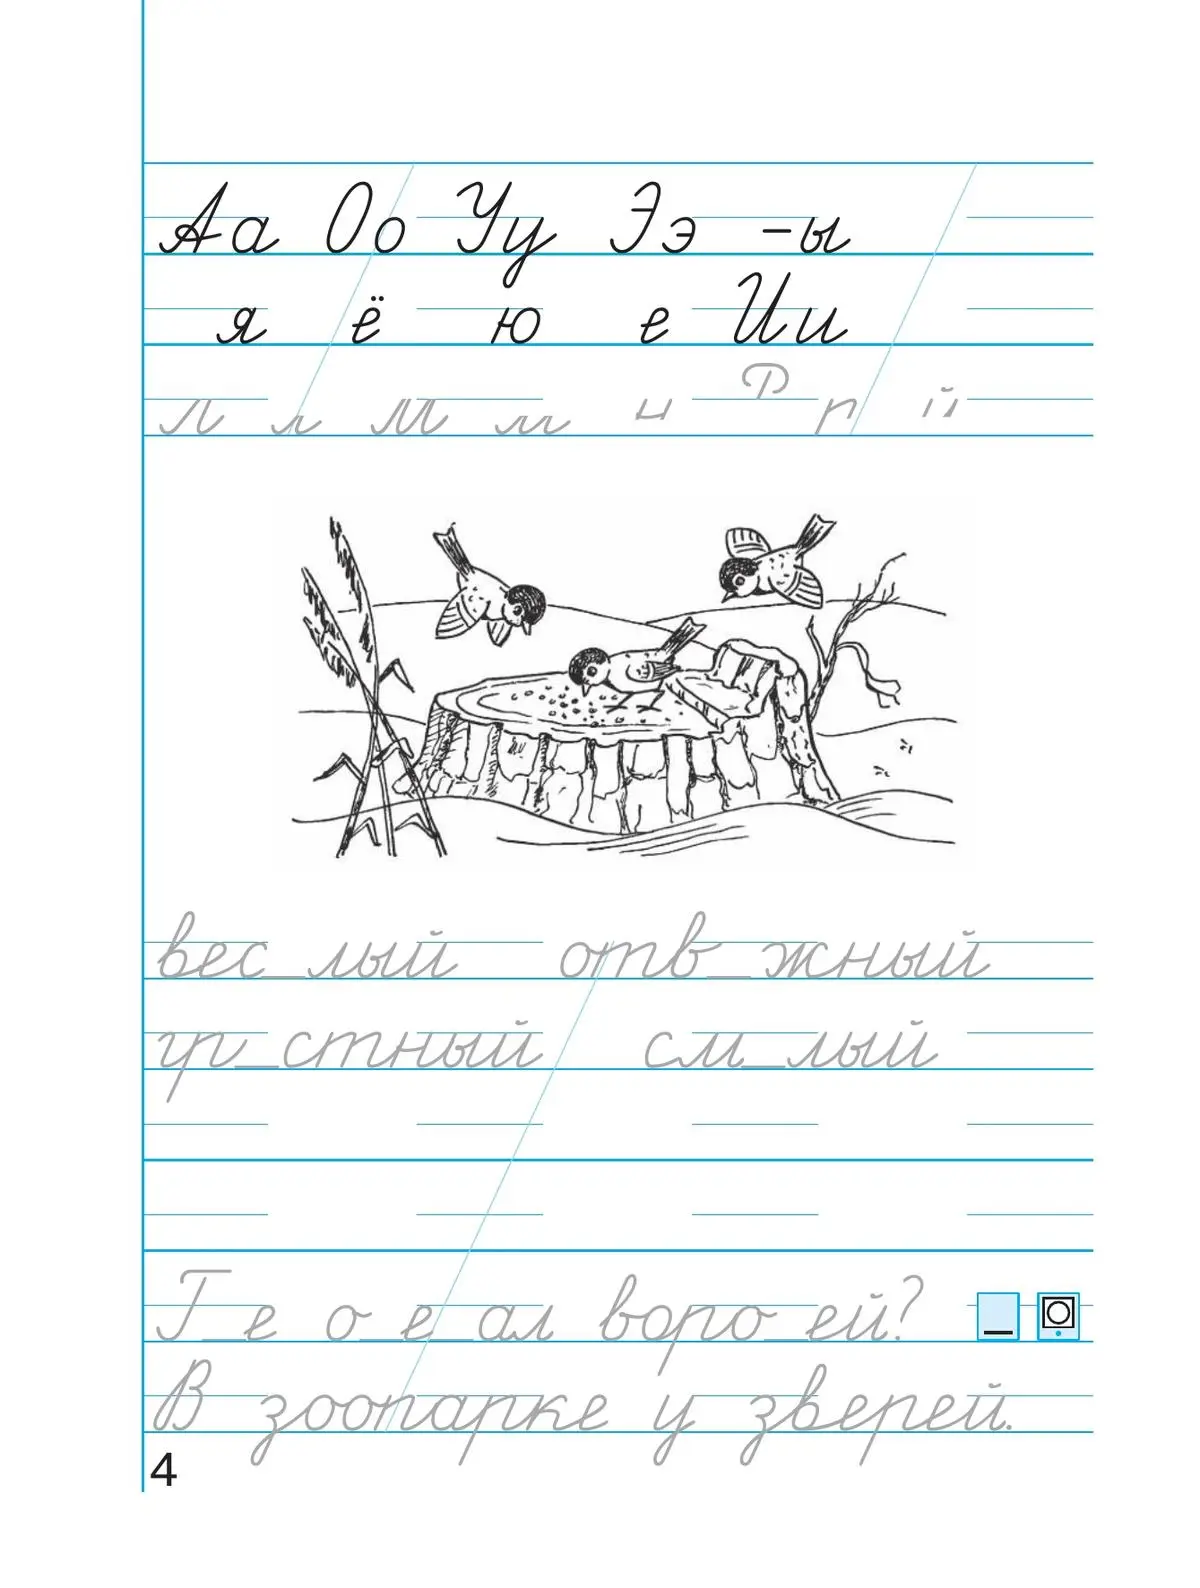 Аа Оо Уу Ээ -ы
я ё ю е Ии
л л м м н Р р й
вес_лый отв_жный
гр_стный см_лый
Г_е о_е_ал воро_ей?
В зоопарке у зверей.
4